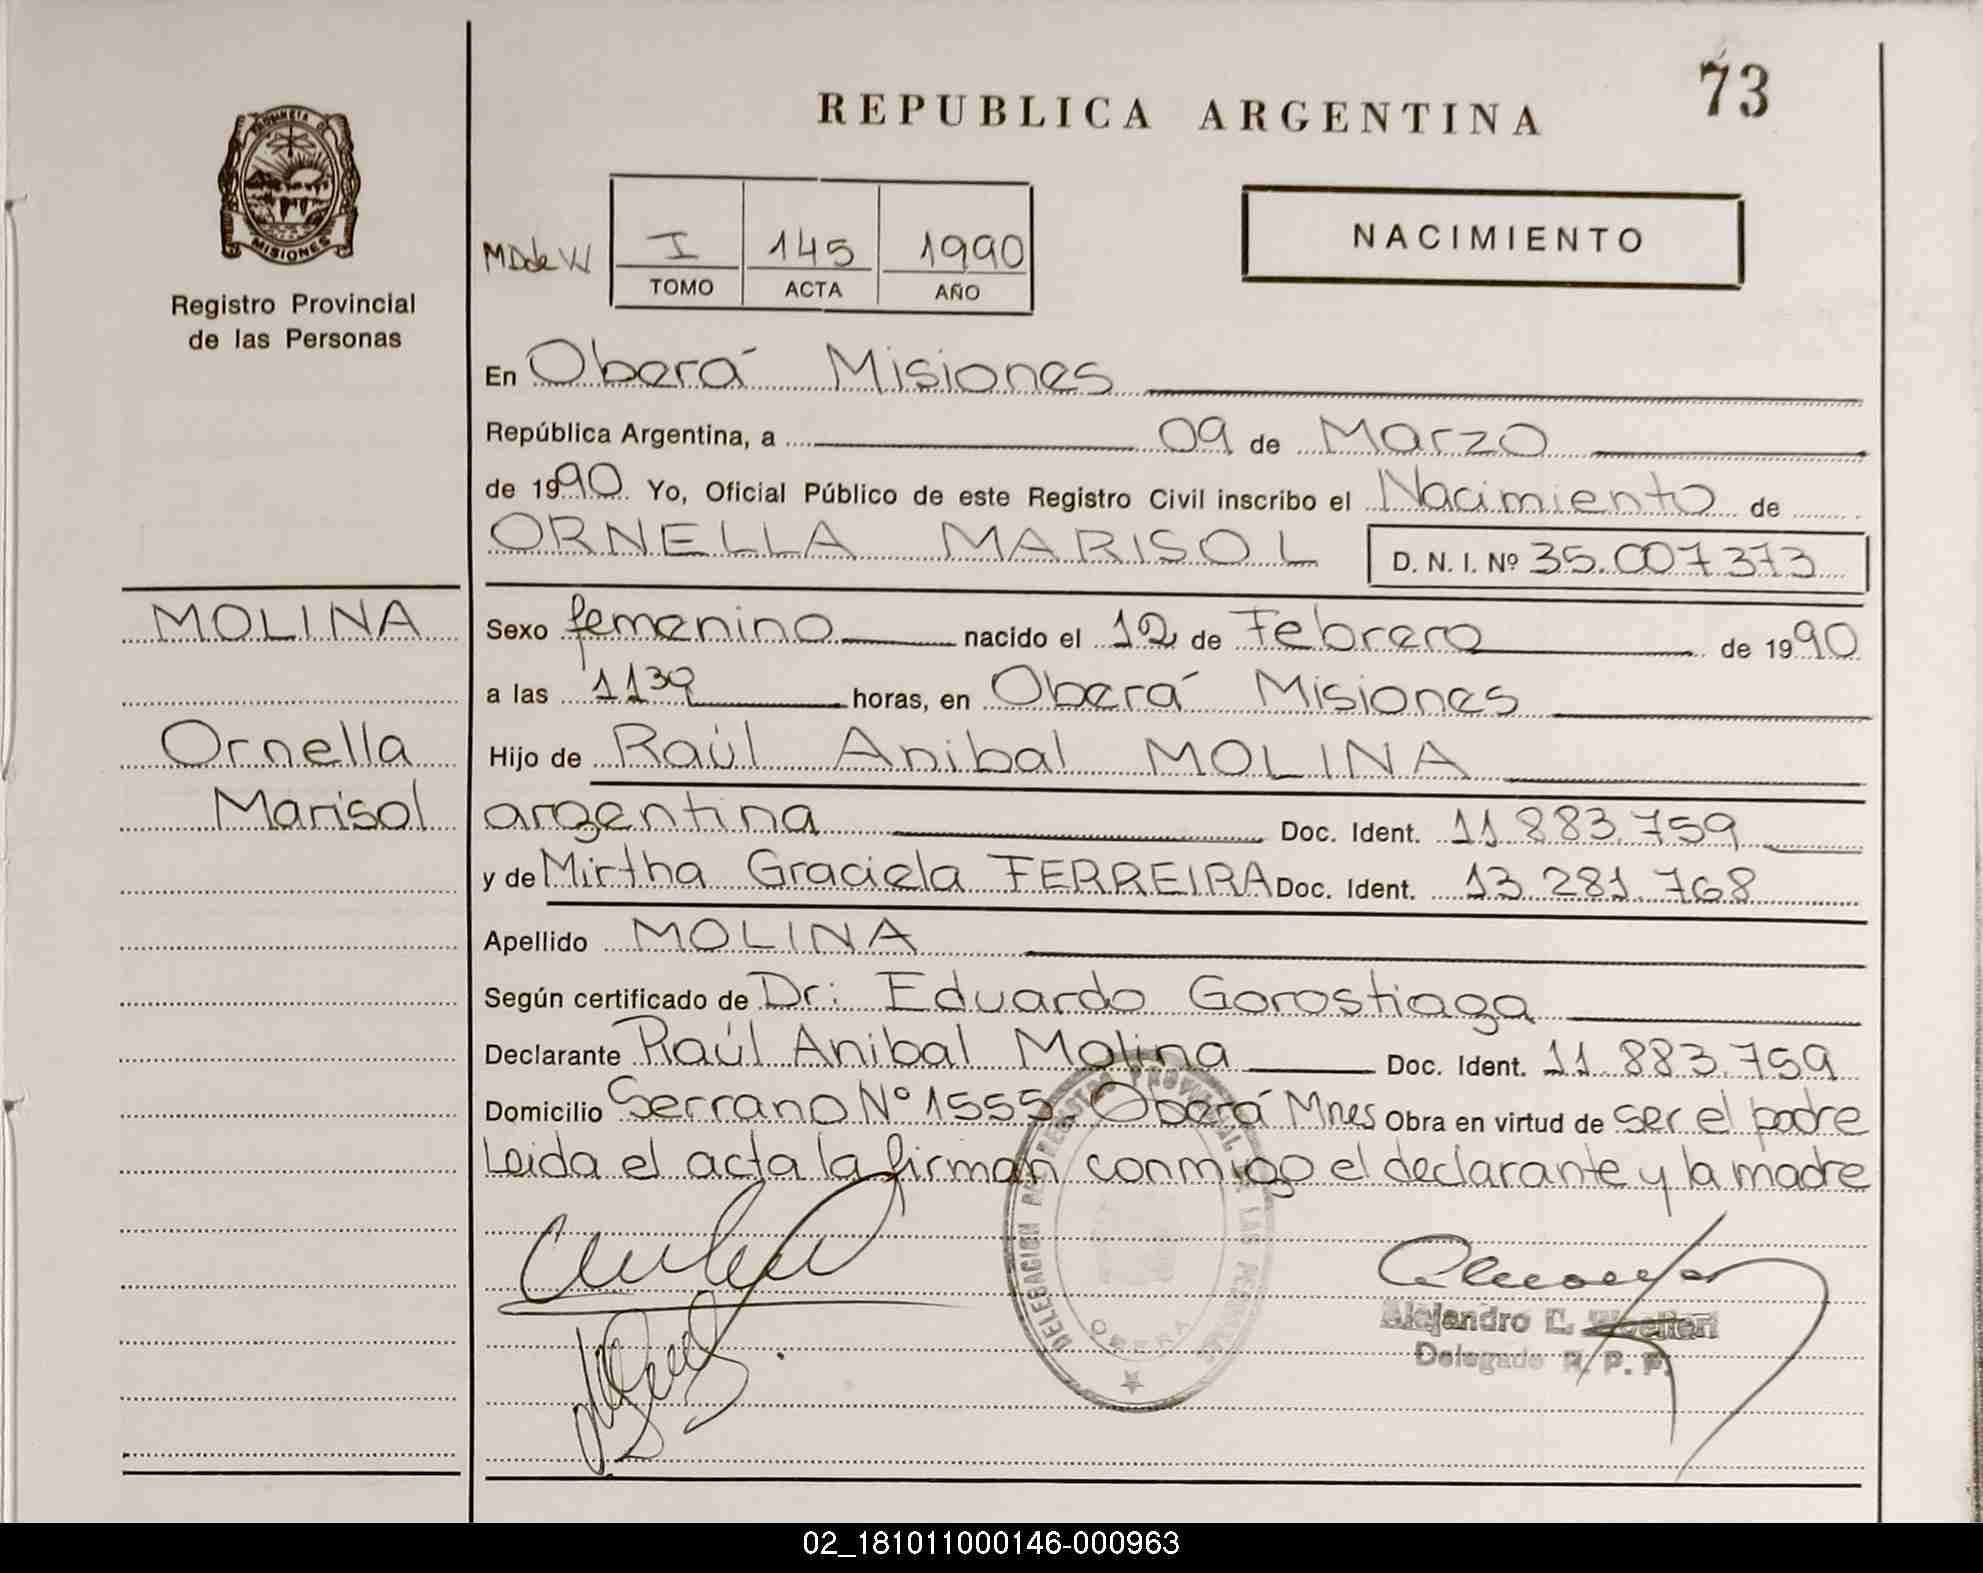 REPUBLICA ARGENTINA
73
PROVINCIA DE
MISIONES
Registro Provincial
de las Personas
MDdeW
I
145
1990
TOMO
ACTA
AÑO
NACIMIENTO
En Oberá Misiones
República Argentina, a 09 de Marzo
de 1990 Yo, Oficial Público de este Registro Civil inscribo el Nacimiento de
ORNELLA MARISOL D. N. I. Nº 35.007.373
MOLINA
Ornella
Marisol
Sexo femenino nacido el 12 de Febrero de 1990
a las 1139 horas, en Oberá Misiones
Hijo de Raúl Anibal MOLINA
argentina Doc. Ident. 11.883.759
y de Mirtha Graciela FERREIRA Doc. Ident. 13.281.768
Apellido MOLINA
Según certificado de Dr: Eduardo Gorostiaga
Declarante Raúl Anibal Molina Doc. Ident. 11.883.759
Domicilio Serrano Nº 1555. Oberá Mnes Obra en virtud de ser el padre
Leida el acta la firman conmigo el declarante y la madre
DELEGACION DEL REGISTRO PROVINCIAL DE LAS PERSONAS
OBERA
Alejandro E.
Delegado R. P. P.
02_181011000146-000963